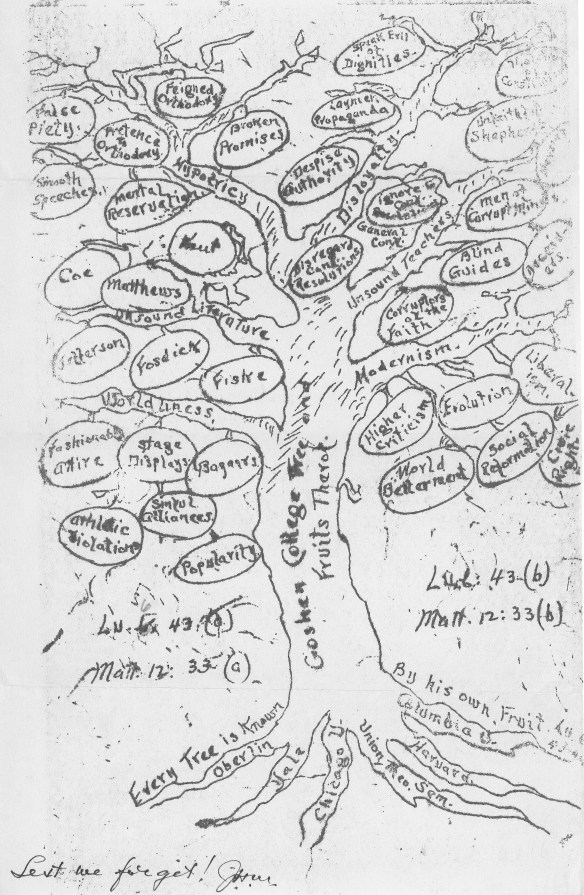 Speak Evil
of
Dignities.
Feigned
Orthodoxy
Laymen
Propaganda
False
Piety.
Pretence
to
Orthodoxy
Broken
Promises
Unfaithful
Shepherds
Smooth
Speeches,
Mental
Reservation
Hypocricy
Despise
Authority
Disloyalty.
Ignore
Gen.
Conf
Resolutions
General
Conf.
Men of
Corrupt Minds
Kaut
Disregard
Conf.
Resolutions
Unsound Teachers
Blind
Guides
Coe
Matthews
Unsound Literature
Corruptors
of the
Faith
Jefferson
Fosdick
Fiske
Modernism.
Liberal-
ism.
Worldliness.
Higher
Criticism
Evolution
Fashionable
Attire
Stage
Displays
Bazaars
World
Betterment
Social
Reformation
Civic
Right
Athletic
Violation
Sinful
Alliances
Popularity
Goshen College Tree and
Fruits Therof.
Lu. 6: 43-(a)
Matt. 12: 33-(a)
Lu. 6: 43-(b)
Matt. 12: 33(b)
Every Tree is Known
By his own Fruit. Lu. 6
Oberlin
Yale
Chicago U.
Union Theo. Sem.
Harvard
Columbia U.
Lest we forget!